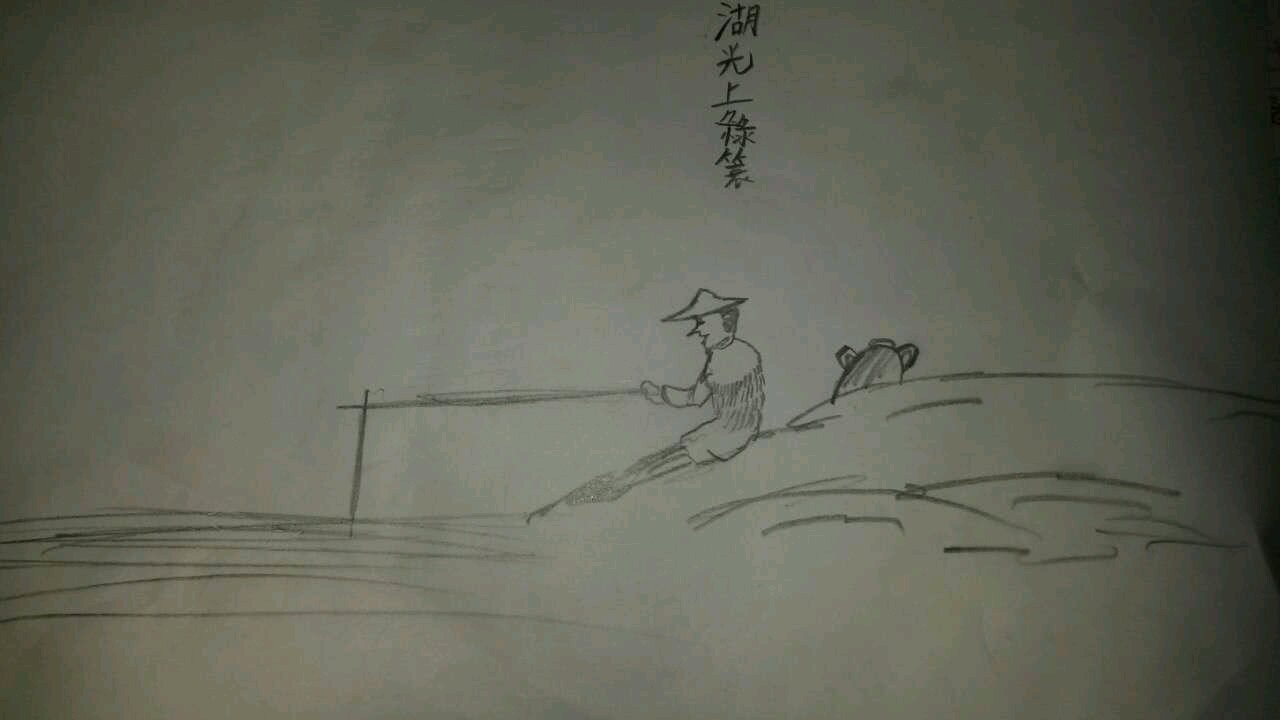 湖光上綠簑